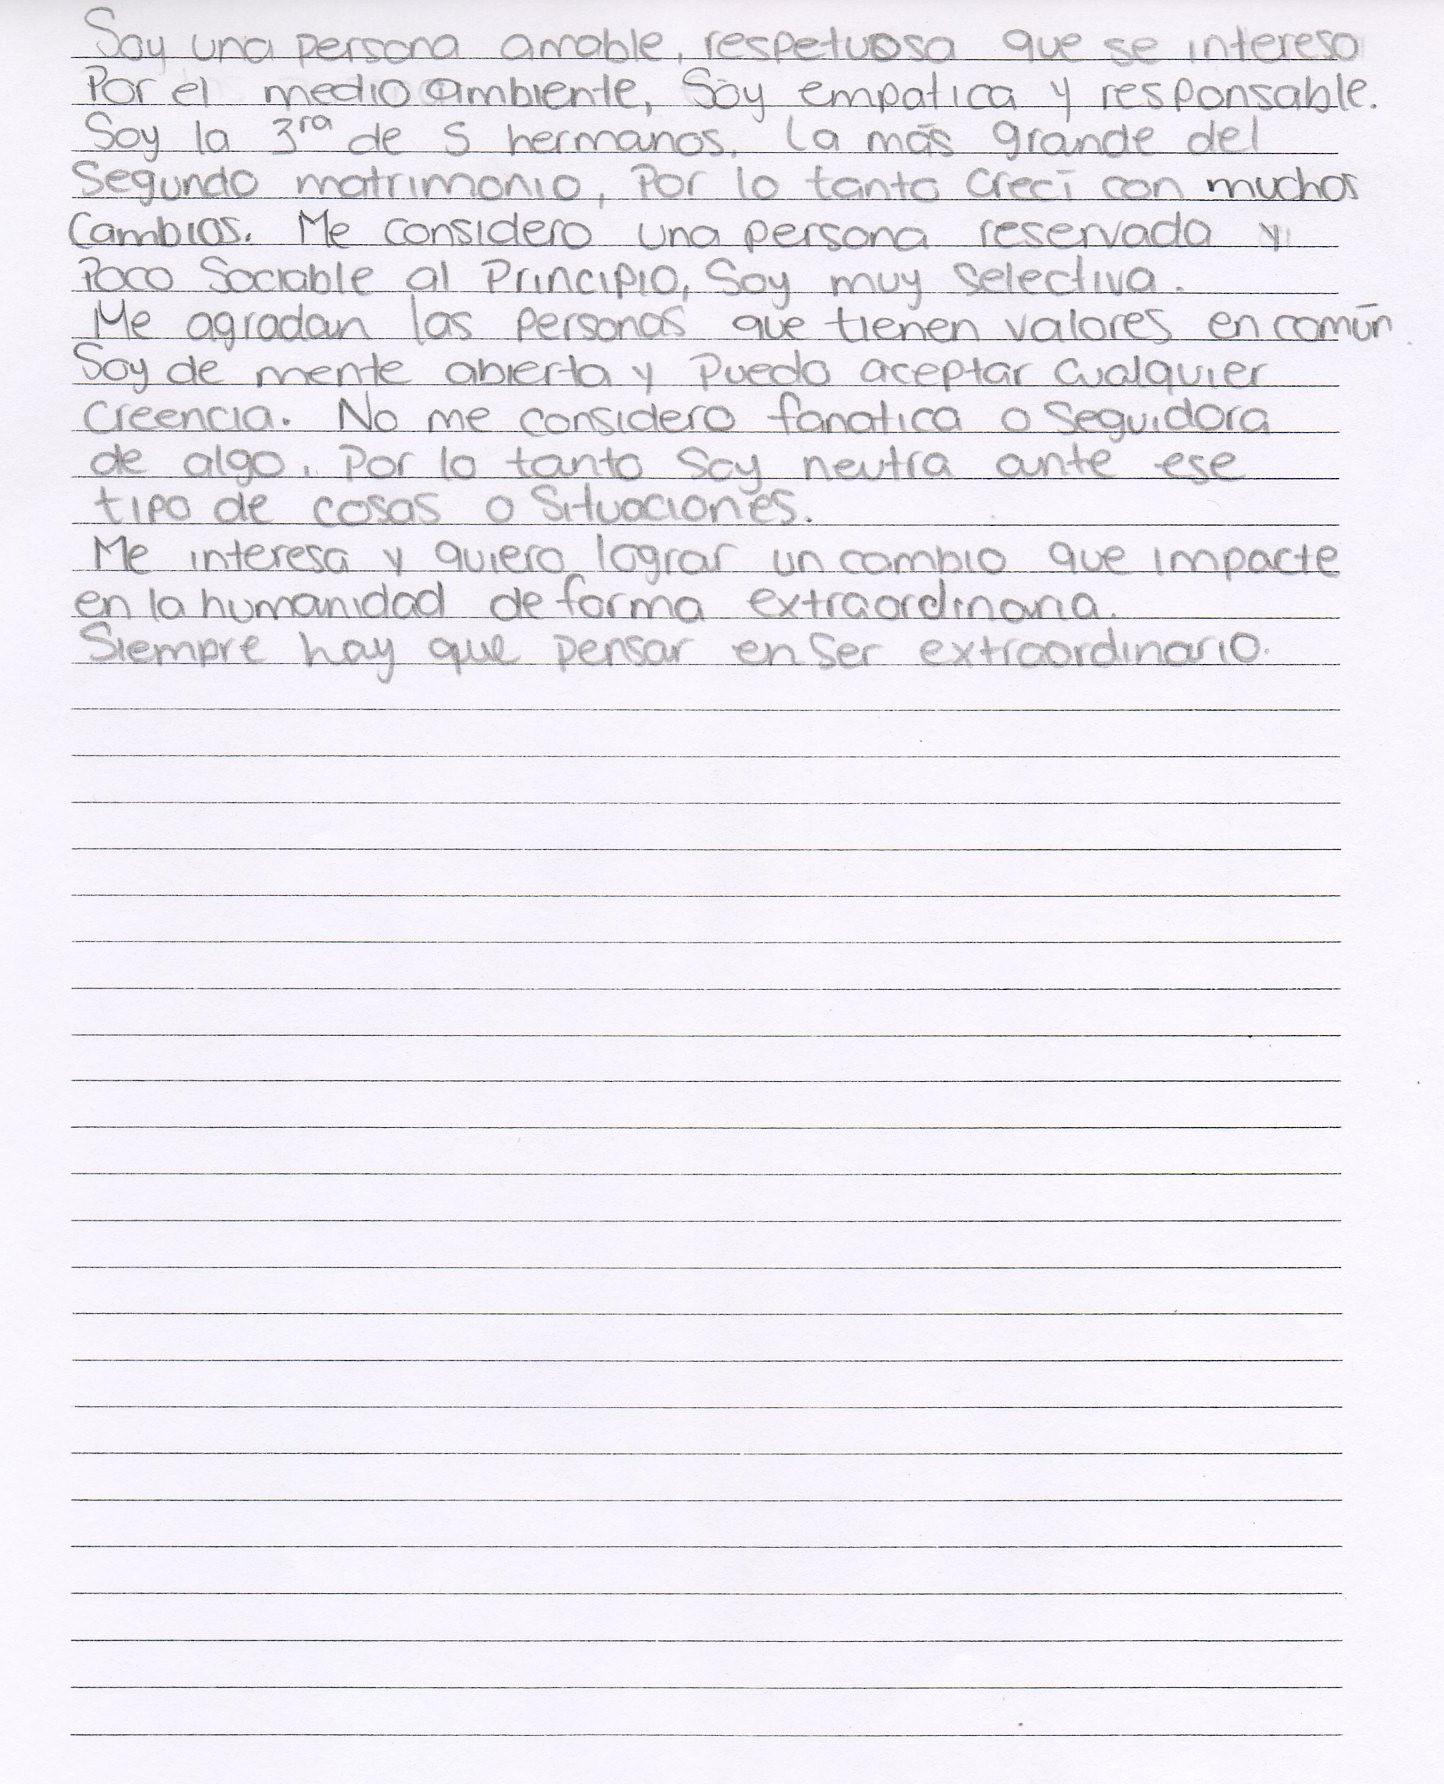 Soy una persona amable, respetuosa que se interesa
Por el medio ambiente, Soy empatica y responsable.
Soy la 3ra de 5 hermanos. La más grande del
Segundo matrimonio, Por lo tanto Crecí con muchos
Cambios. Me considero una persona reservada y
Poco Sociable al Principio, Soy muy Selectiva.
Me agradan las personas que tienen valores en común
Soy de mente abierta y Puedo aceptar Cualquier
Creencia. No me considero fanatica o Seguidora
de algo. Por lo tanto Soy neutra ante ese
tipo de cosas o Situaciones.
Me interesa y quiero lograr un cambio que impacte
en la humanidad de forma extraordinaria.
Siempre hay que pensar en Ser extraordinario.